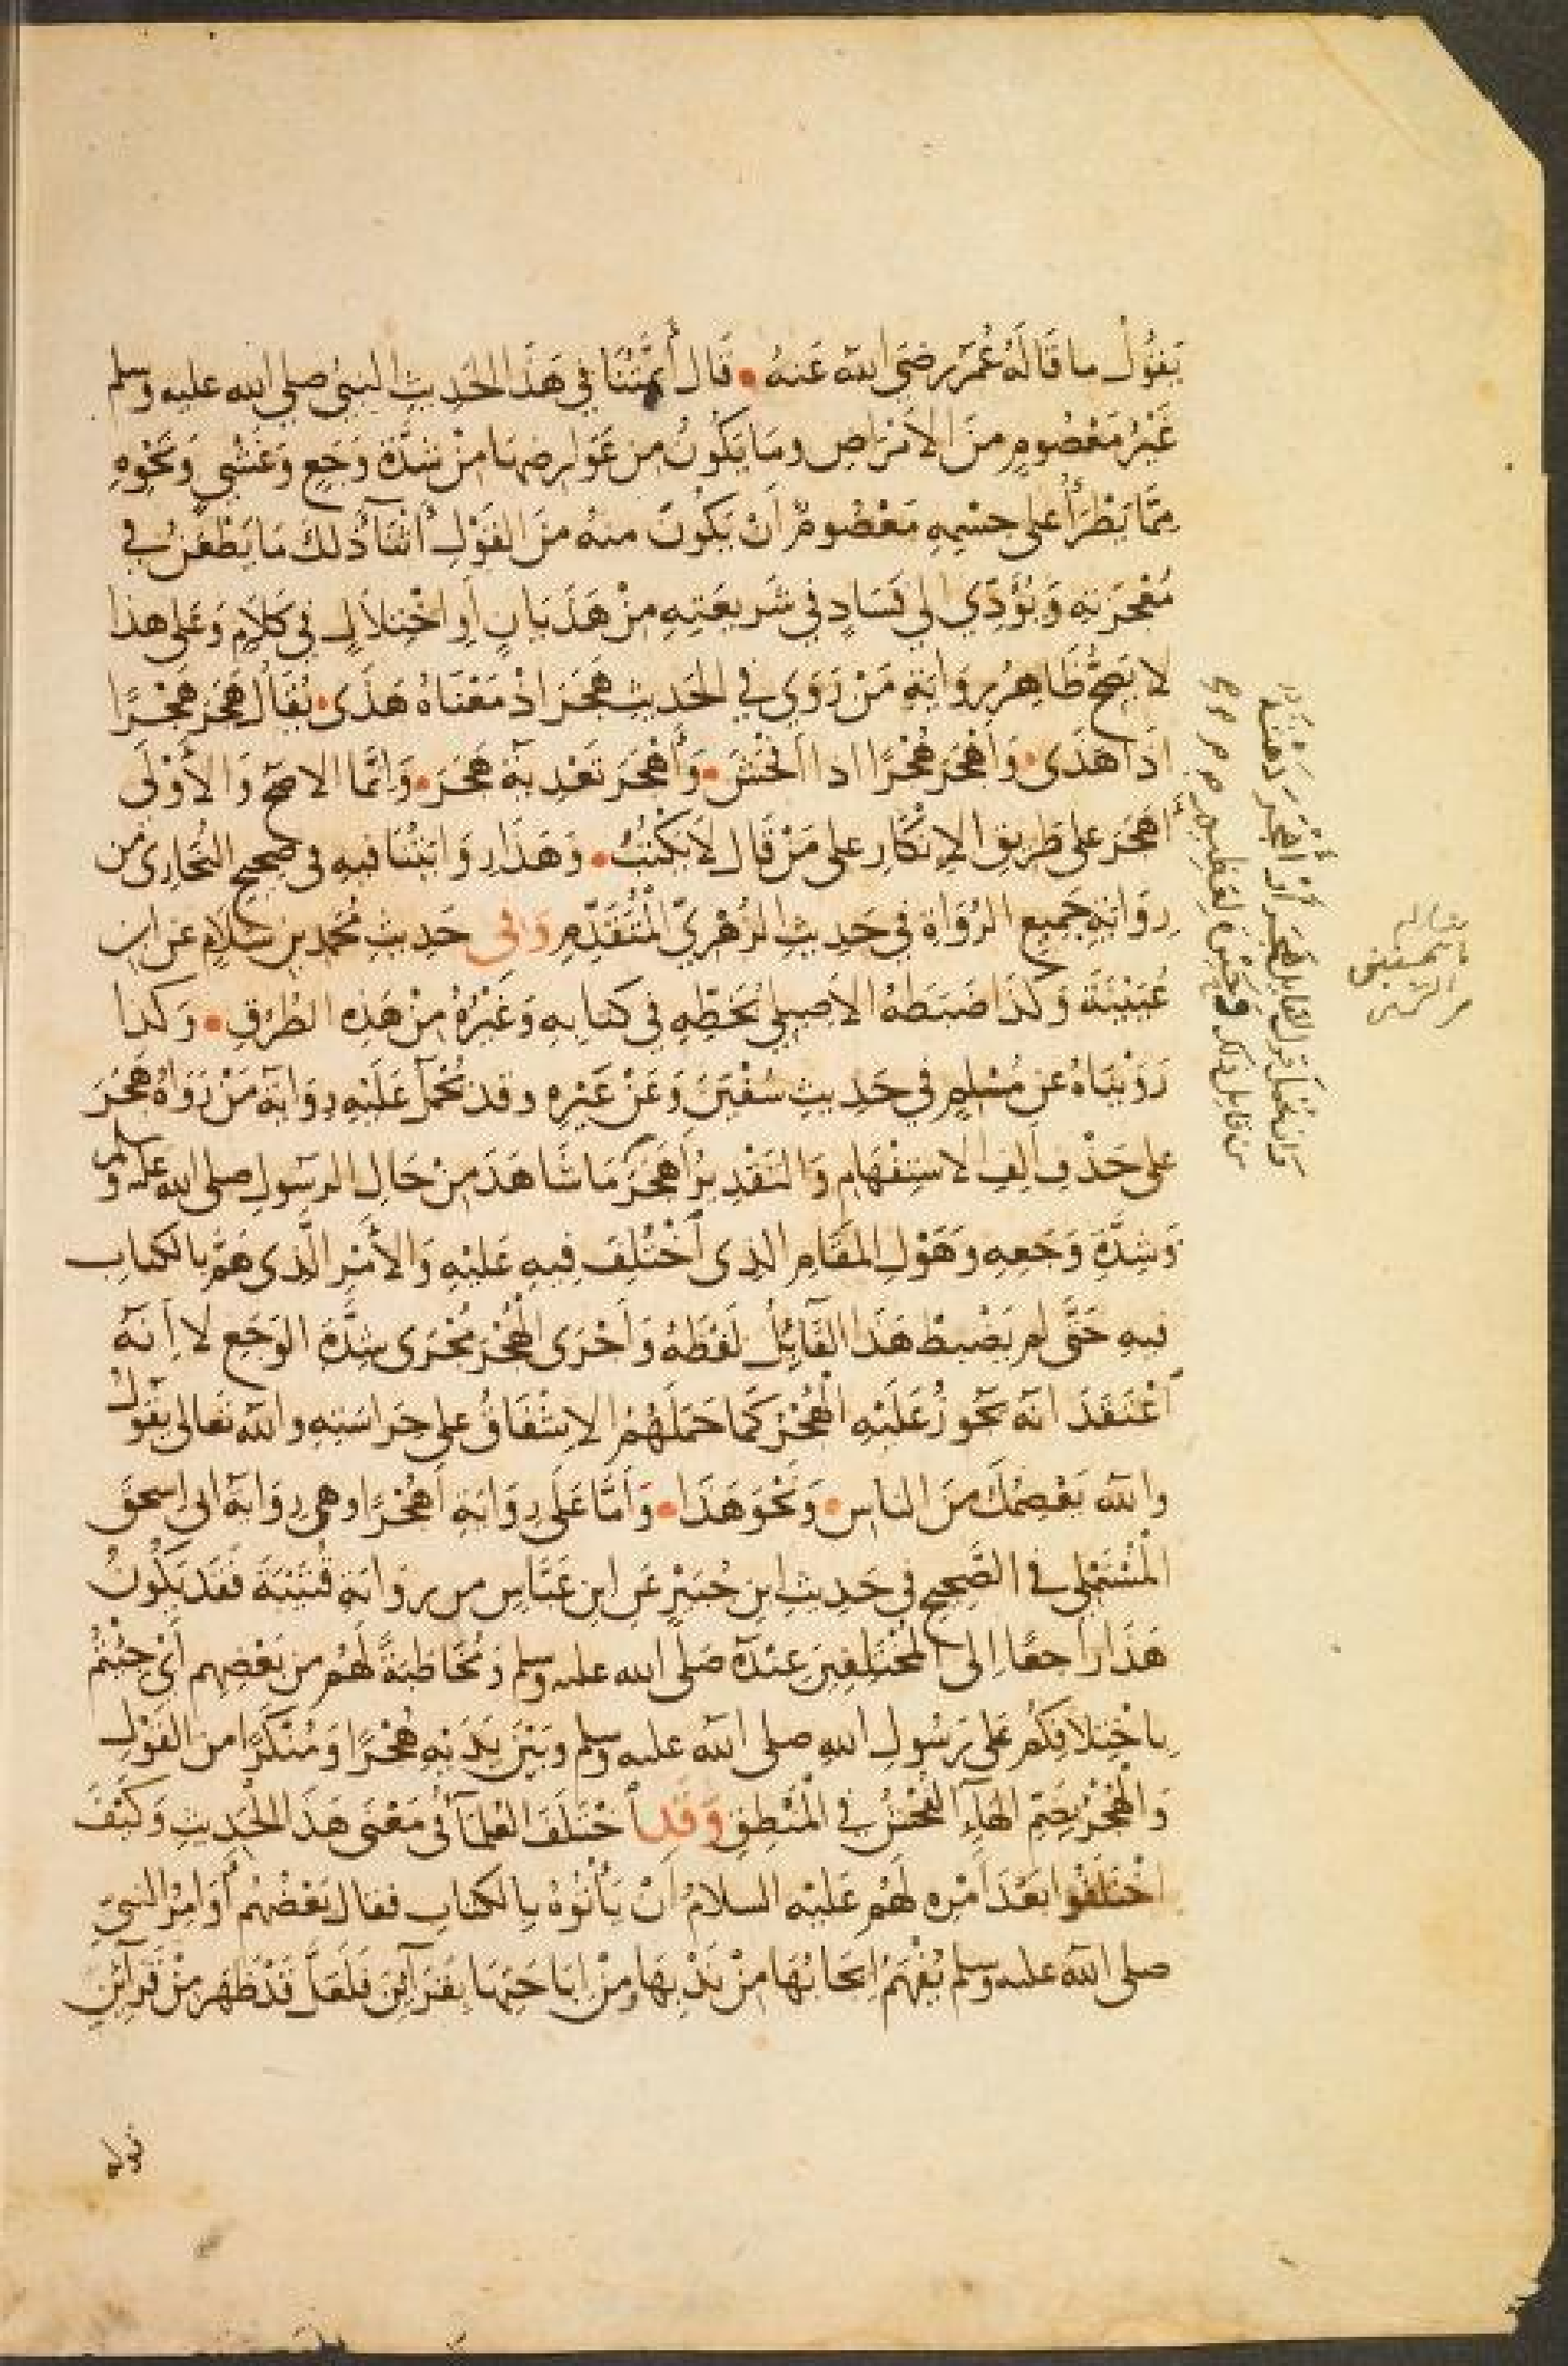 يَقُولُ ما قَالَهُ عُمَرُ رضيَ اللهُ عَنهُ • قَالَ أَئِمَّتُنَا في هَذَا الحَدِيثِ النبيُّ صلى الله عليه وسلم
غَيْرُ مَعْصُومٍ مِنَ الأَمْرَاضِ ومَا يَكُونُ مِن عَوَارِضِهَا مِنْ شِدَّةِ وَجَعٍ وَغَشْيٍ وَنَحْوِهِ
مِمَّا يَطْرَأُ على جِسْمِهِ مَعْصُومٌ أَنْ يَكُونَ منهُ مِنَ القَوْلِ أَثْنَآ ذلكَ مَا يَطْعَنُ في
مُعْجَزَتِهِ وَيُؤَدِّي الى فَسَادٍ في شَرِيعَتِهِ مِنْ هَذَيَانٍ أَوِ اخْتِلاَلٍ في كَلاَمٍ وَعَلى هذا
لا يَصِحُّ ظَاهِرُ رِوَايَةِ مَنْ رَوَى في الحَدِيثِ هَجَرَ اذْ مَعْنَاهُ هَذَى • يُقَالُ هَجَرَ هَجْرًا
اذَا هَذَى • وَأَهْجَرَ هُجْرًا اذا أَفْحَشَ • وَأَهْجَرَ تَعْدِيَةُ هَجَرَ • وَانَّما الاصَحُّ وَالأَوْلَى
أَهَجَرَ على طَرِيقِ الإِنْكَارِ على مَنْ قَالَ لاَ يَكْتُبُ • وَهَذَا رِوَايَتُنَا فيهِ في صَحِيحِ البُخَارِى مِن
رِوَايَةِ جَمِيعِ الرُّوَاةِ في حَدِيثِ الزُّهْرِيِّ المُتَقَدِّمِ وَفى حَدِيثِ مُحَمَّدِ بنِ سَلاَمٍ عَنِ ابنِ
عُيَيْنَةَ وَكَذَا ضَبَطَهُ الأَصِيلِي بخَطِّهِ في كِتَابِهِ وَغَيْرُهُ مِنْ هَذِهِ الطُّرُقِ • وَكَذَا
رَوَيْنَاهُ عَن مُسْلِمٍ في حَدِيثِ سُفْيَنَ وَعَنْ غَيْرِهِ وقد تُحْمَلُ عَلَيْهِ رِوَايَةُ مَنْ رَوَاهُ هَجَرَ
على حَذْفِ أَلِفِ الاسْتِفْهَامِ وَالتَقْدِيرُ أَهَجَرَ مَا شَاهَدَ مِنْ حَالِ الرَسُولِ صلى الله عليه وسلم
وَشِدَّةِ وَجَعِهِ وَهَوْلِ المَقَامِ الذِى اخْتُلِفَ فِيهِ عَلَيْهِ وَالأَمْرِ الَّذِى هَمَّ بِالكِتَابِ
فيهِ حَتَّى لم يَضْبِطْ هَذَا القَآئِلُ لَفْظَهُ وَأَجْرَى الهُجْرَ مُجْرَى شِدَّةِ الوَجَعِ لا أَنَّهُ
اعْتَقَدَ انَّهُ يَجُوزُ عَلَيْهِ الهُجْرُ كَمَا حَمَلَهُمُ الإِشْفَاقُ على حِرَاسَتِهِ والله تعالى يَقُولُ
والله يَعْصِمُكَ مِنَ الناسِ • وَنَحْوَ هَذَا • وَأَمَّا عَلَى رِوَايَةِ أَهُجْرًا وهي رِوَايَةُ ابي إسحقَ
المُسْتَمْلِي في الصَّحِيحِ في حَدِيثِ ابنِ جُبَيْرٍ عَنِ ابنِ عَبَّاسٍ مِن رِوَايَةِ قُتَيْبَةَ فَقَد يَكُونُ
هَذَا رَاجِعًا إِلى المُخْتَلِفِينَ عِنْدَهُ صَلّى الله عليه وسلم وَمُخَاطَبَةً لَهُم مِن بَعْضِهِم أَيْ جِئْتُم
بِاخْتِلاَفِكُم عَلَى رَسُولِ اللهِ صلى الله عليه وسلم وبَيْنَ يَدَيْهِ هُجْرًا وَمُنْكَرًا مِنَ القَوْلِ
وَالْهُجْرُ بِضَمِّ الهَآءِ الفُحْشُ في المَنْطِقِ وَقَدِ اخْتَلَفَ العُلَمَآءُ في مَعْنَى هَذَا الحَدِيثِ وَكَيْفَ
اخْتَلَفُوا بَعْدَ أَمْرِهِ لَهُم عَلَيْهِ السلامُ أَنْ يَأْتُوهُ بِالكِتَابِ فقال بَعْضُهُم أَوَامِرُ النبيِّ
صلى الله عليه وسلم يُفْهَمُ إِيجَابُهَا مِنْ نَدْبِهَا مِنْ ابَاحَتِهَا بِقَرَآئِنَ فَلَعَلَّ قَدْ ظَهَرَ مِنْ قَرَآئِنِ